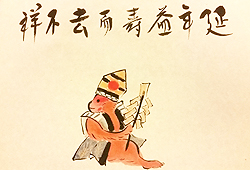 延年益壽而去不祥